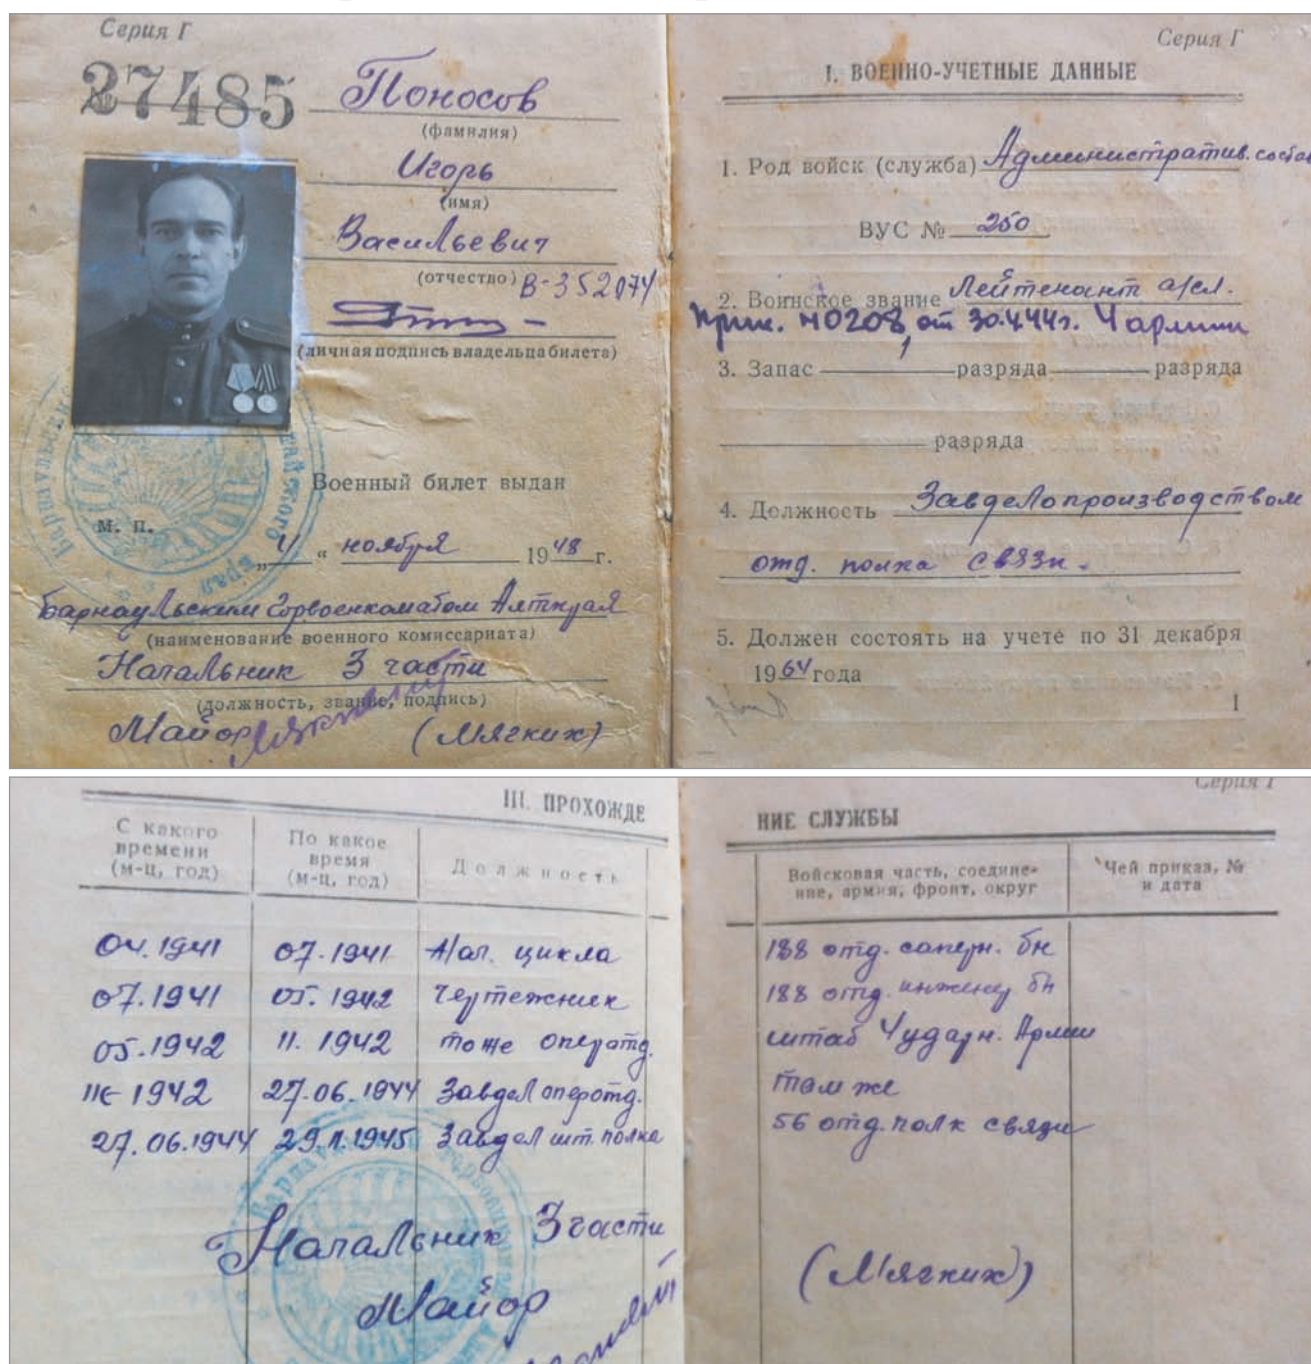 Серия Г
27485
Поносов
(фамилия)
Игорь
(имя)
Васильевич
(отчество) В-352074
(личная подпись владельца билета)
Военный билет выдан
М. П.
„4“ ноября 1948 г.
Барнаульским Горвоенкоматом Алткрая
(наименование военного комиссариата)
Начальник 3 части
(должность, звание, подпись)
Майор (Мягких)
Серия Г
I. ВОЕННО-УЧЕТНЫЕ ДАННЫЕ
1. Род войск (служба) Административ. состав
ВУС № 250
2. Воинское звание Лейтенант а/сл.
Прик. №0208 от 30.4.44г. 4 армии
3. Запас разряда разряда
разряда
4. Должность Завделопроизводством
отд. полка связи.
5. Должен состоять на учете по 31 декабря
1964 года
1
Серия Г
III. ПРОХОЖДЕНИЕ СЛУЖБЫ
С какого времени (м-ц, год) По какое время (м-ц, год) Должность Войсковая часть, соединение, армия, фронт, округ Чей приказ, № и дата
04.1941 07.1941 цикла 188 отд. саперн. бн
07.1941 05.1942 Чертежник 188 отд. инженер бн
05.1942 11.1942 тоже оператд. штаб 4 ударн. Армии
1942 27.06.1944 Завдел оперотд. там же
27.06.1944 1945 Завдел шт. полка 56 отд. полк связи
Начальник 3 части
Майор (Мягких)